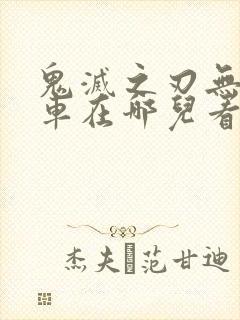 鬼滅之刃無
車在哪兒看
杰夫 范甘迪